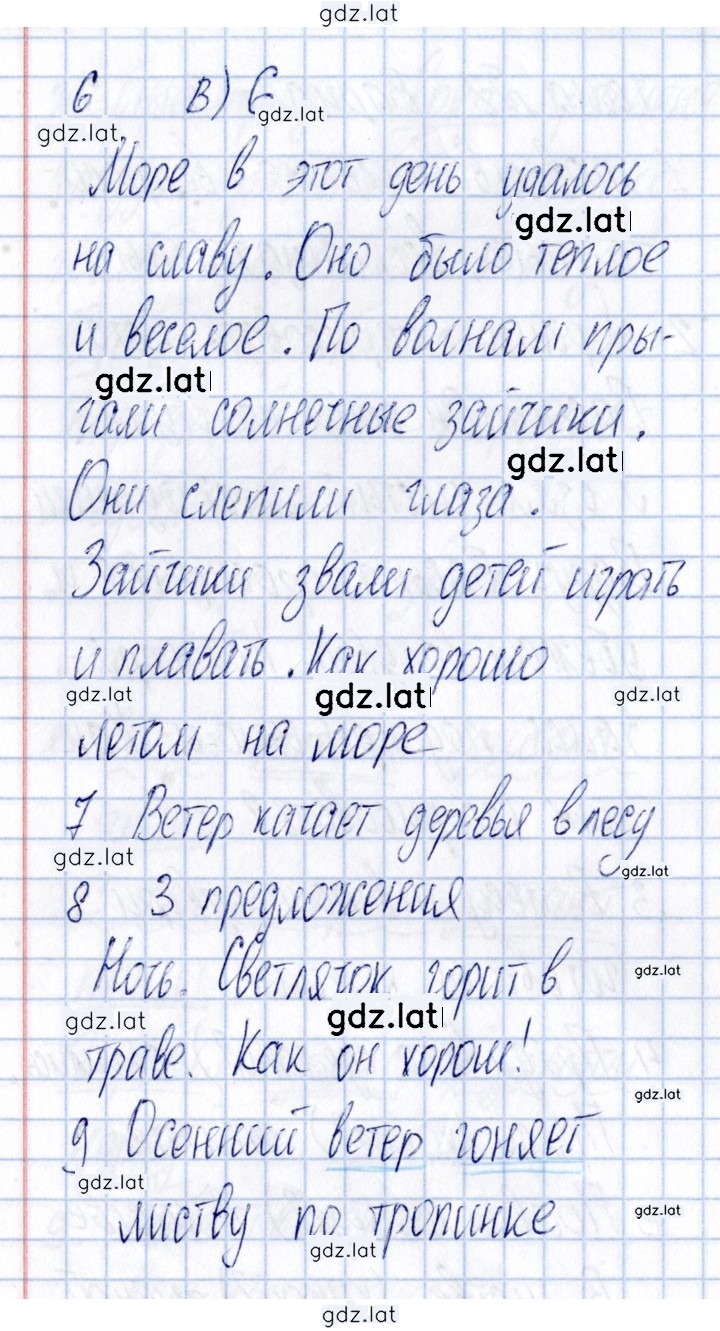 gdz.lat
6 в) 6
gdz.lat gdz.lat
Море в этот день удалось
gdz.lat
на славу. Оно было теплое
и веселое. По волнам пры-
gdz.lat
гали солнечные зайчики.
gdz.lat
Они слепили глаза.
Зайчики звали детей играть
и плавать. Как хорошо
gdz.lat gdz.lat gdz.lat
летом на море
7 Ветер качает деревья в лесу
gdz.lat gdz.lat
8 3 предложения
Ночь. Светлячок горит в
gdz.lat
gdz.lat gdz.lat
траве. Как он хорош!
gdz.lat
9 Осенний ветер гоняет
gdz.lat
листву по тропинке
gdz.lat
gdz.lat
gdz.lat